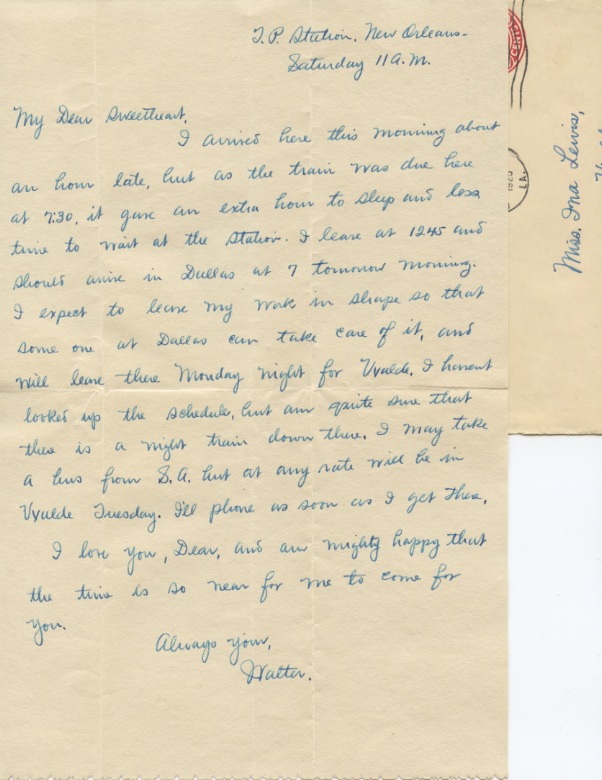 T.P. Station, New Orleans-
Saturday 11 A.M.
My Dear Sweetheart,
I arrived here this morning about
an hour late, but as the train was due here
at 7:30, it gave an extra hour to sleep and less
time to wait at the station. I leave at 1245 and
should arrive in Dallas at 7 tomorrow morning.
I expect to leave my work in shape so that
some one at Dallas can take care of it, and
will leave there Monday night for Uvalde. I havent
looked up the schedule, but am quite sure that
there is a night train down there. I may take
a bus from S.A. but at any rate will be in
Uvalde Tuesday. I'll phone as soon as I get there.
I love you, Dear, and am mighty happy that
the time is so near for me to come for
you.
Always your,
Walter.
Miss. Ina Lewis,
LA.